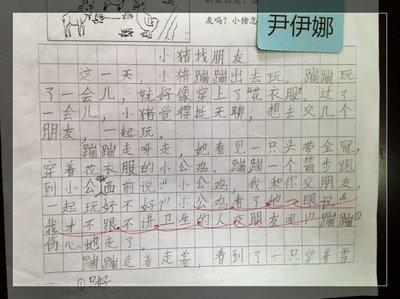 友吗？小猪怎
尹伊娜
小猪找朋友
这一天，小猪蹦蹦出去玩。蹦蹦玩
了一会儿，就好像穿上了“花衣服”。过了
一会儿，小猪觉得挺无聊，想去交几个
朋友，一起玩。
蹦蹦走呀走，她看见一只头带金冠，
穿着花衣服的小公鸡。蹦蹦一个箭步跑
到小公鸡面前说“小公鸡，我想和你交朋友，
一起玩好不好？”小公鸡看了她一眼说“
我才不跟不讲卫生的人交朋友呢！”蹦蹦①
伤心地走了。
蹦蹦走着走着，看到了一只穿着雪
①只好